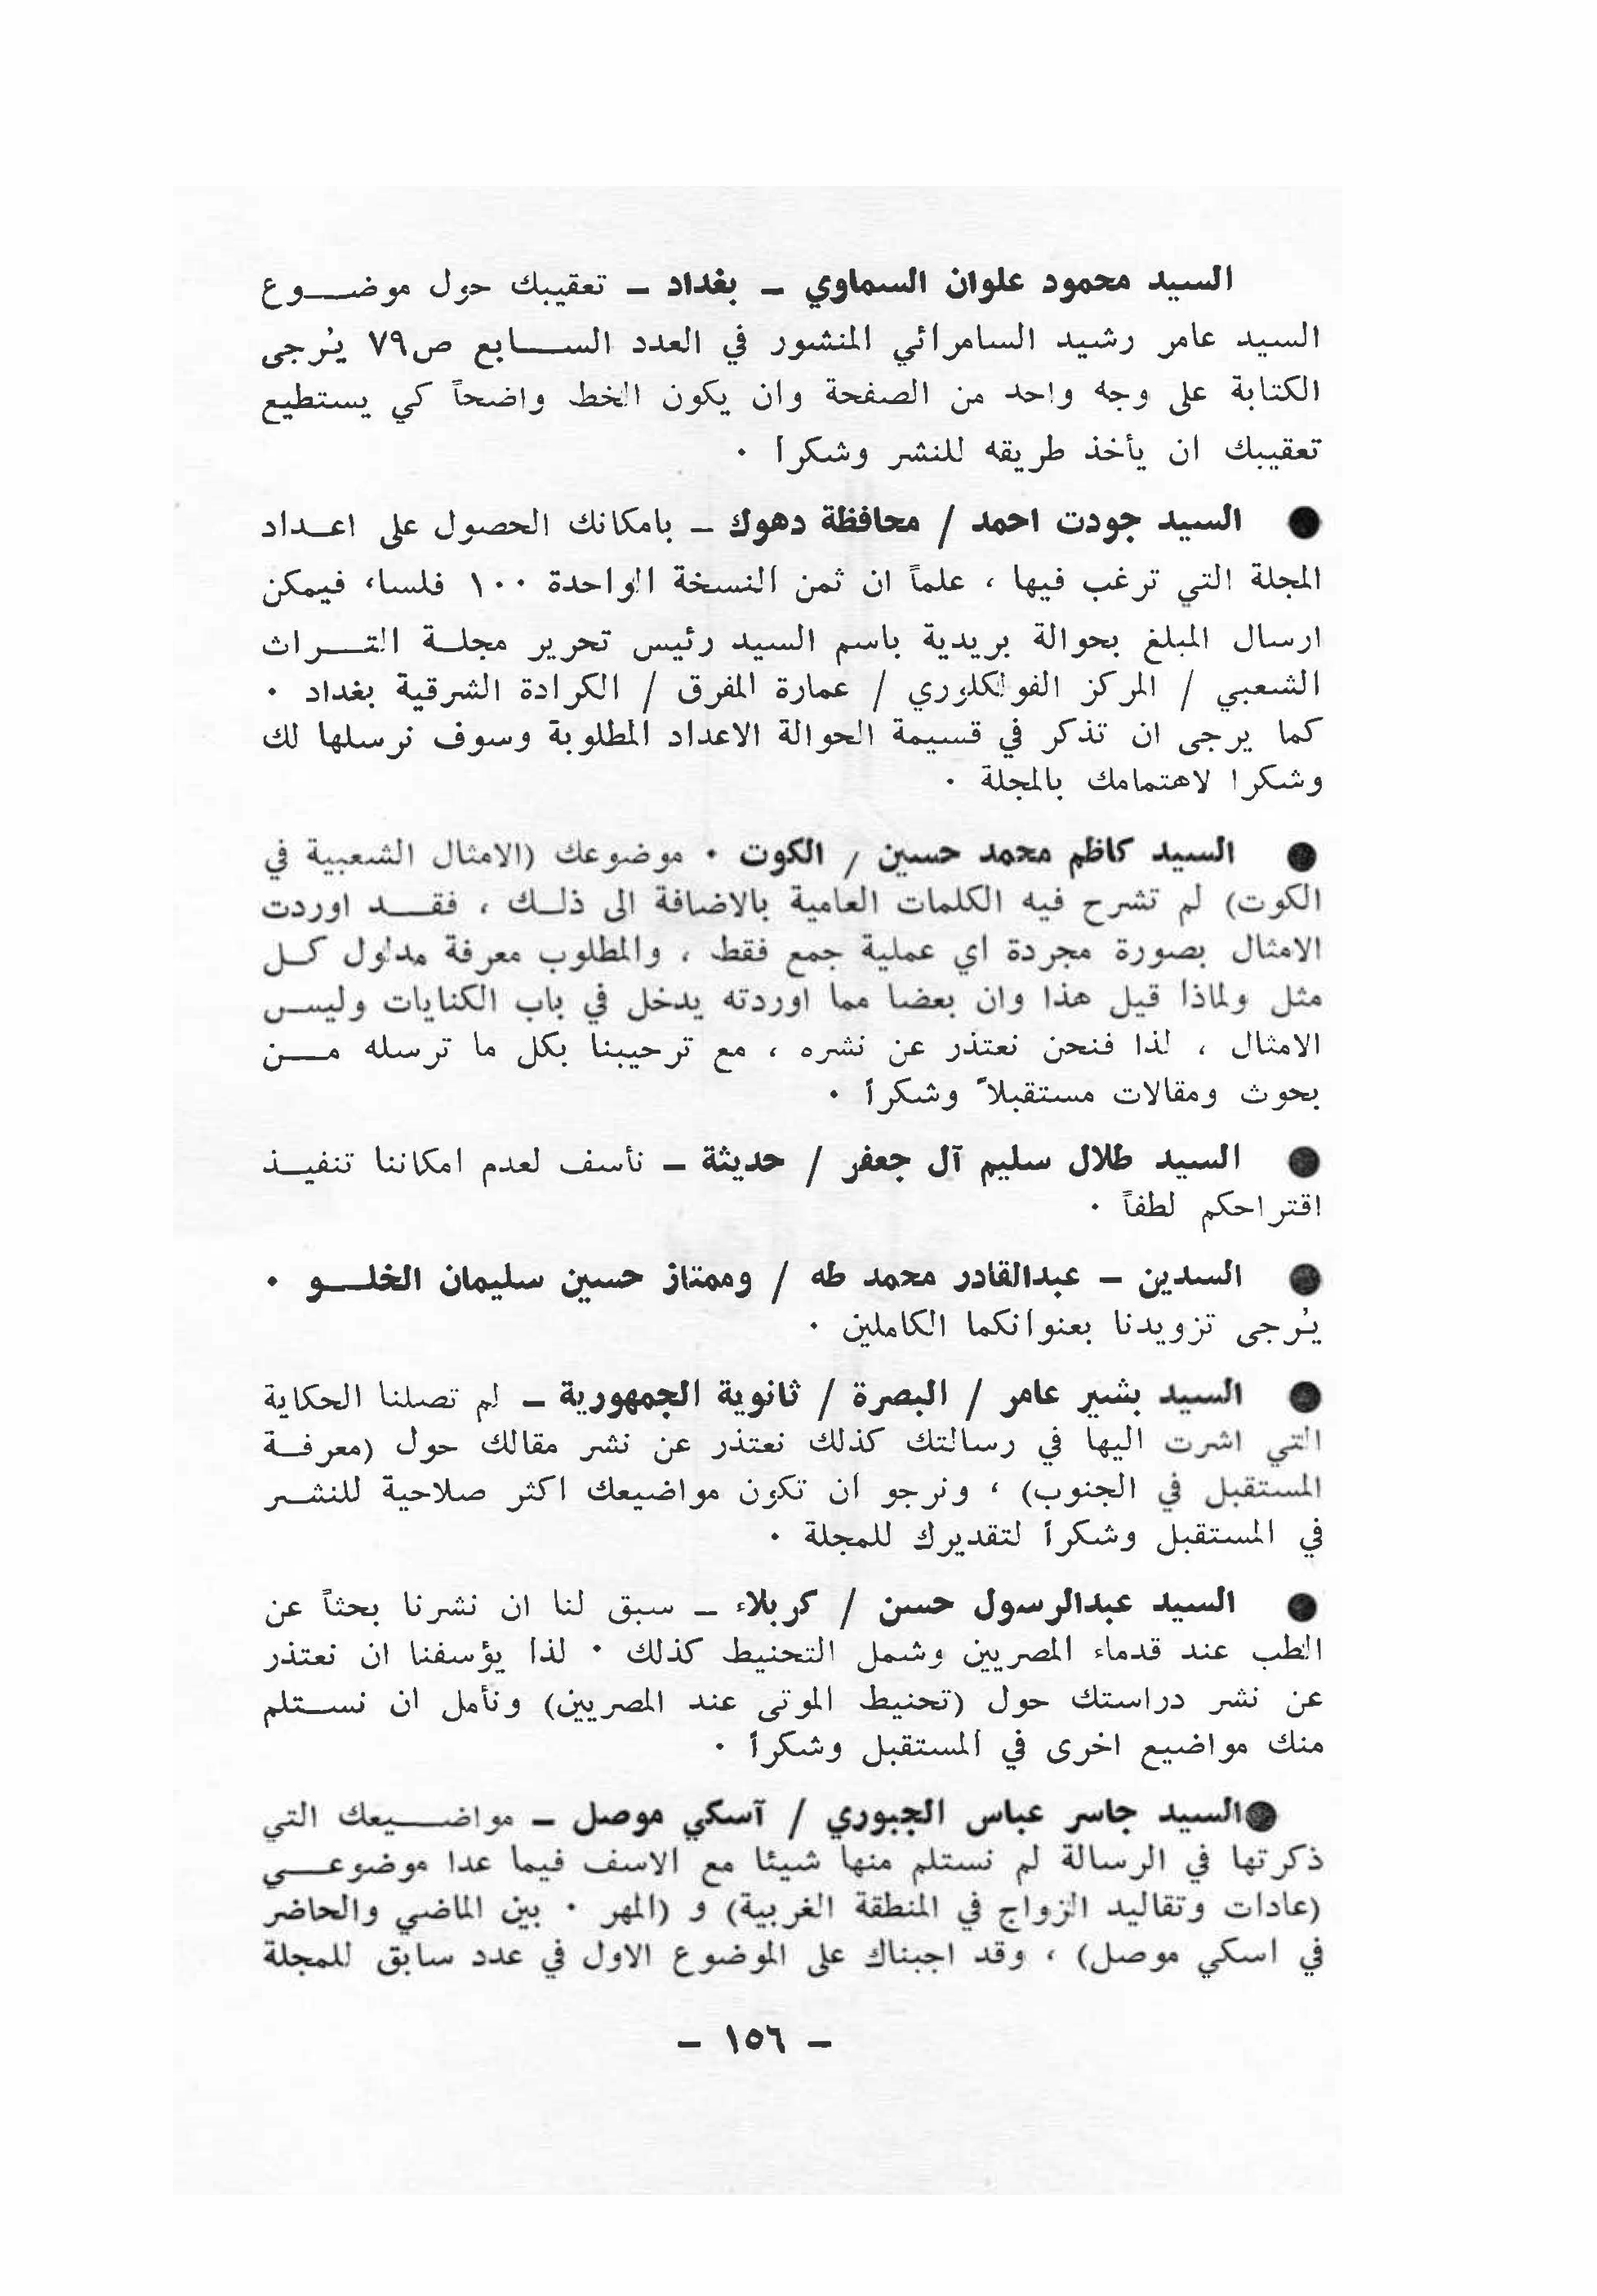 السيد محمود علوان السماوي – بغداد – تعقيبك حول موضوع
السيد عامر رشيد السامرائي المنشور في العدد السابع ص٧٩ يُرجى
الكتابة على وجه واحد من الصفحة وان يكون الخط واضحاً كي يستطيع
تعقيبك ان يأخذ طريقه للنشر وشكراً ٠
● السيد جودت احمد / محافظة دهوك – بامكانك الحصول على اعداد
المجلة التي ترغب فيها ، علماً ان ثمن النسخة الواحدة ١٠٠ فلسا، فيمكن
ارسال المبلغ بحوالة بريدية باسم السيد رئيس تحرير مجلة التراث
الشعبي / المركز الفولكلوري / عمارة المفرق / الكرادة الشرقية بغداد ٠
كما يرجى ان تذكر في قسيمة الحوالة الاعداد المطلوبة وسوف نرسلها لك
وشكرا لاهتمامك بالمجلة ٠
● السيد كاظم محمد حسين / الكوت ٠ موضوعك (الامثال الشعبية في
الكوت) لم تشرح فيه الكلمات العامية بالاضافة الى ذلك ، فقد اوردت
الامثال بصورة مجردة اي عملية جمع فقط ، والمطلوب معرفة مدلول كل
مثل ولماذا قيل هذا وان بعضا مما اوردته يدخل في باب الكنايات وليس
الامثال ، لذا فنحن نعتذر عن نشره ، مع ترحيبنا بكل ما ترسله من
بحوث ومقالات مستقبلاً وشكراً ٠
● السيد طلال سليم آل جعفر / حديثة – نأسف لعدم امكاننا تنفيذ
اقتراحكم لطفاً ٠
● السدين – عبدالقادر محمد طه / وممتاز حسين سليمان الخلو ٠
يُرجى تزويدنا بعنوانكما الكاملين ٠
● السيد بشير عامر / البصرة / ثانوية الجمهورية – لم تصلنا الحكاية
التي اشرت اليها في رسالتك كذلك نعتذر عن نشر مقالك حول (معرفة
المستقبل في الجنوب) ، ونرجو ان تكون مواضيعك اكثر صلاحية للنشر
في المستقبل وشكراً لتقديرك للمجلة ٠
● السيد عبدالرسول حسن / كربلاء – سبق لنا ان نشرنا بحثاً عن
الطب عند قدماء المصريين وشمل التحنيط كذلك ٠ لذا يؤسفنا ان نعتذر
عن نشر دراستك حول (تحنيط الموتى عند المصريين) ونأمل ان نستلم
منك مواضيع اخرى في المستقبل وشكراً ٠
●السيد جاسر عباس الجبوري / آسكي موصل – مواضيعك التي
ذكرتها في الرسالة لم نستلم منها شيئا مع الاسف فيما عدا موضوعي
(عادات وتقاليد الزواج في المنطقة الغربية) و (المهر ٠ بين الماضي والحاضر
في اسكي موصل) ، وقد اجبناك على الموضوع الاول في عدد سابق للمجلة
– ١٥٦ –